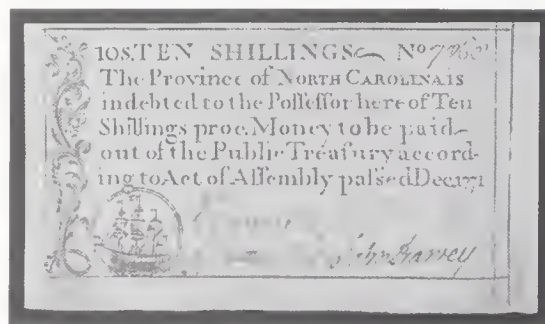 10S. TEN SHILLINGS No
The Province of NORTH CAROLINA is
indebted to the Poſſeſſor here of Ten
Shillings proc. Money to be paid
out of the Public Treaſury accord-
ing to Act of Aſſembly paſsed Dec. 1771
John Harvey